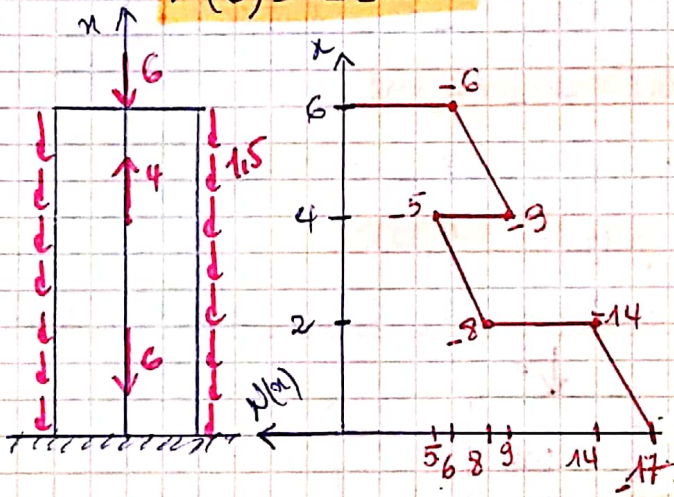 x
6
4
1,5
6
x
6
-6
4
-5
-9
2
-8
-14
N(x)
5 6 8 9 14 -17